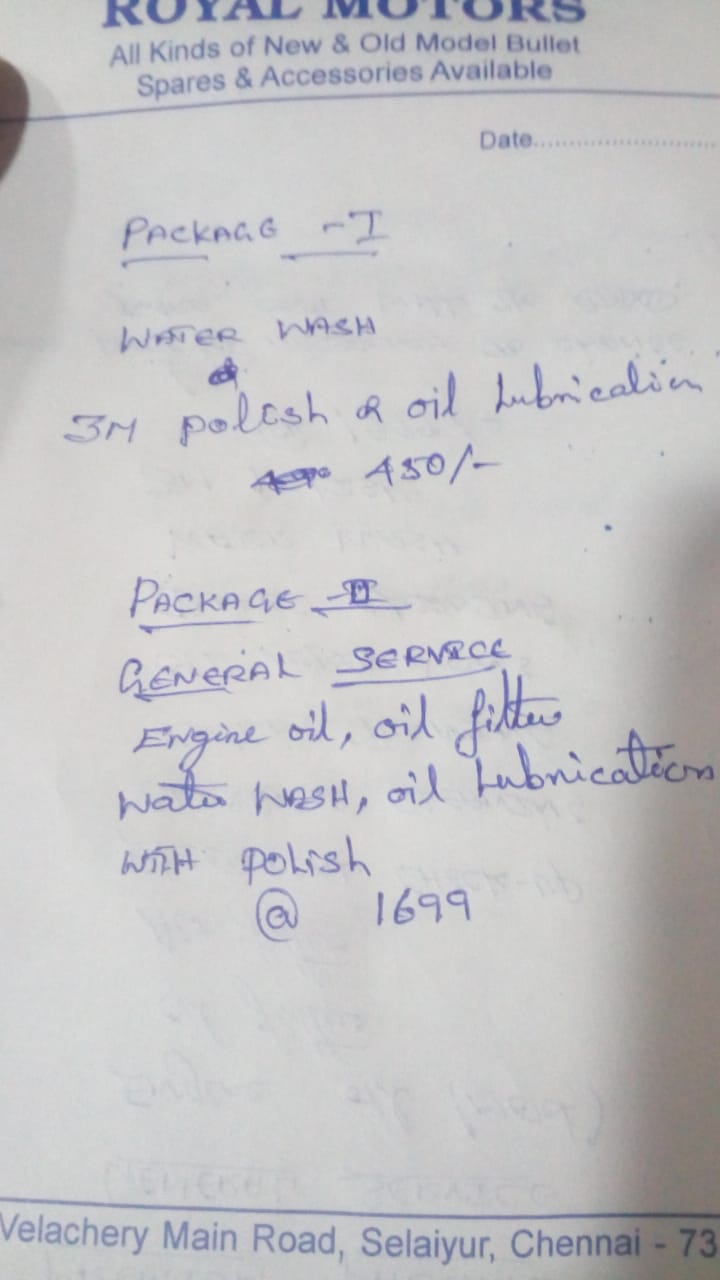 ROYAL MOTORS
All Kinds of New & Old Model Bullet
Spares & Accessories Available
Date..............................
PACKAGE -I
WATER WASH
3M polish & oil Lubrication
450/-
PACKAGE -II
GENERAL SERVICE
Engine oil, oil filter
Water WASH, oil Lubrication
WITH polish
@ 1699
Velachery Main Road, Selaiyur, Chennai - 73